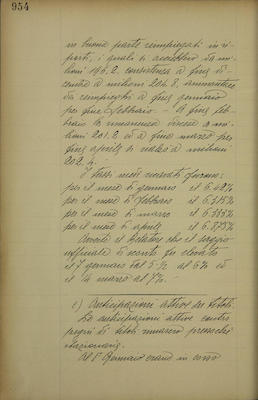 954
in buona parte reimpiegati in ri-
porti, i quali si accrebbero da mi-
lioni 196.2. consistenza a fine di-
cembre a milioni 204.8. ammontare
da compiersi a fine gennaio
per fine febbraio - A fine feb-
braio la rimanenza a mi-
lioni 201.2 ed a fine marzo per
fine aprile si ridusse a milioni
202.4.
I tassi medi ricavati furono:
per il mese di gennaio il 5.62%
per il mese di febbraio il 5.815%
per il mese di marzo il
per il mese di aprile il 5.875%
Avverte il Direttore che il saggio
ufficiale di sconto fu elevato
il 7 gennaio dal 5.½ al 6% ed
il 14 marzo al 7%.
c) Anticipazioni attive su titoli
Le anticipazioni attive contro
pegni di titoli rimasero pressoché
stazionarie.
Al 1° Gennaio erano in corso